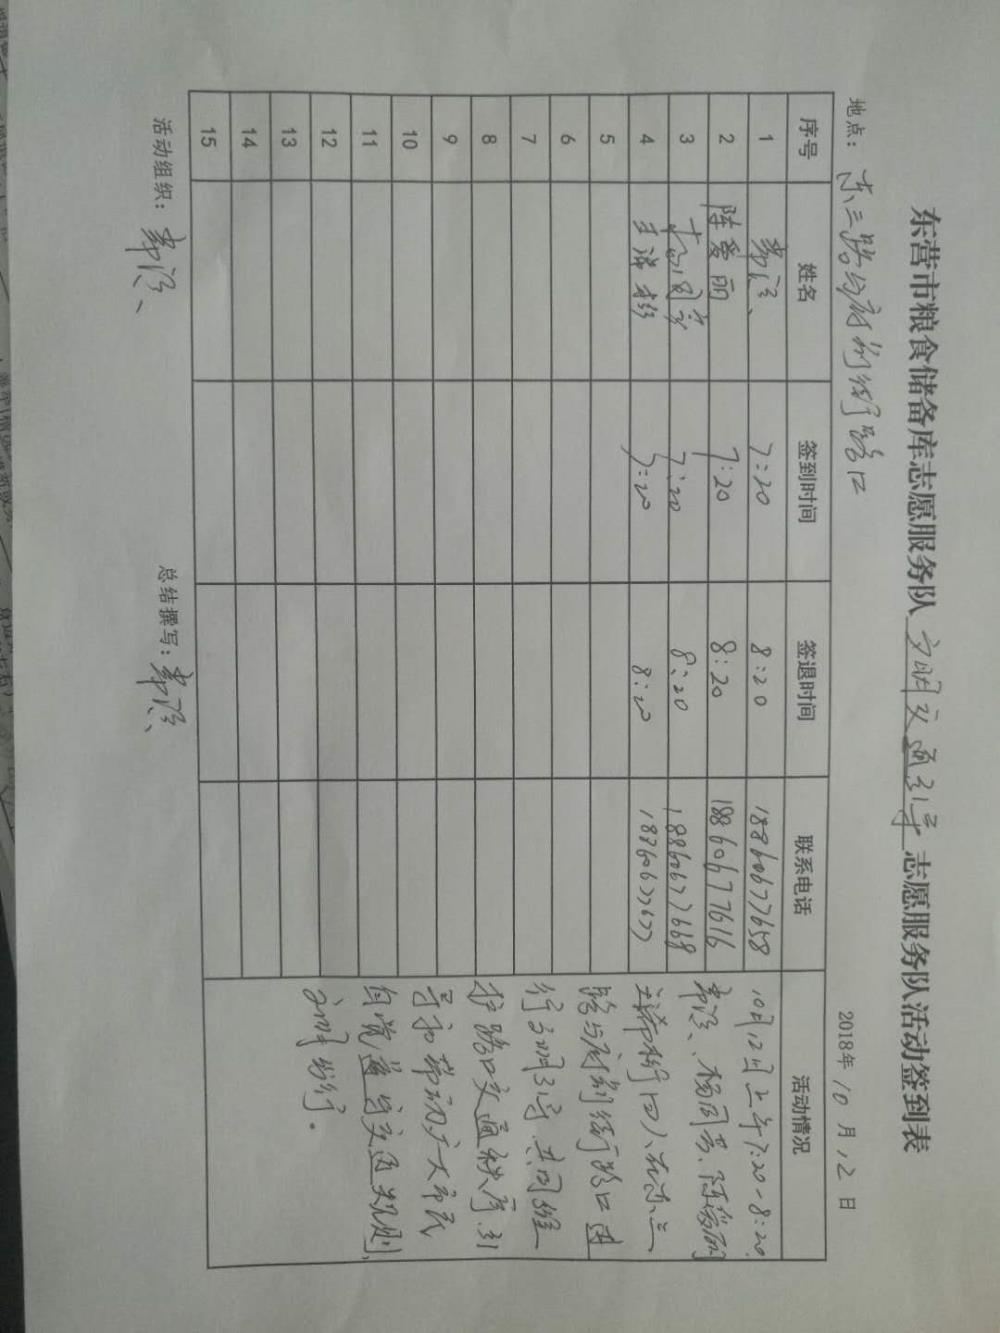 东营市粮食储备库志愿服务队文明交通引导志愿服务队活动签到表
地点：东三路与府前街路口 2018年10月12日
序号 姓名 签到时间 签退时间 联系电话 活动情况
1 7:20 8:20 18860677658
2 陈爱丽 7:20 8:20 18860677616
3 7:20 8:20 18860677668
4 7:20 8:20 18860677677
5
6
7
8
9
10
11
12
13
14
15
10月12日上午7:20-8:20
陈爱丽
四人在东三
路与府前街路口进
行文明引导,共同维
护路口交通秩序,引
导和带动广大市民
自觉遵守交通规则,
文明出行。
活动组织：
总结撰写：